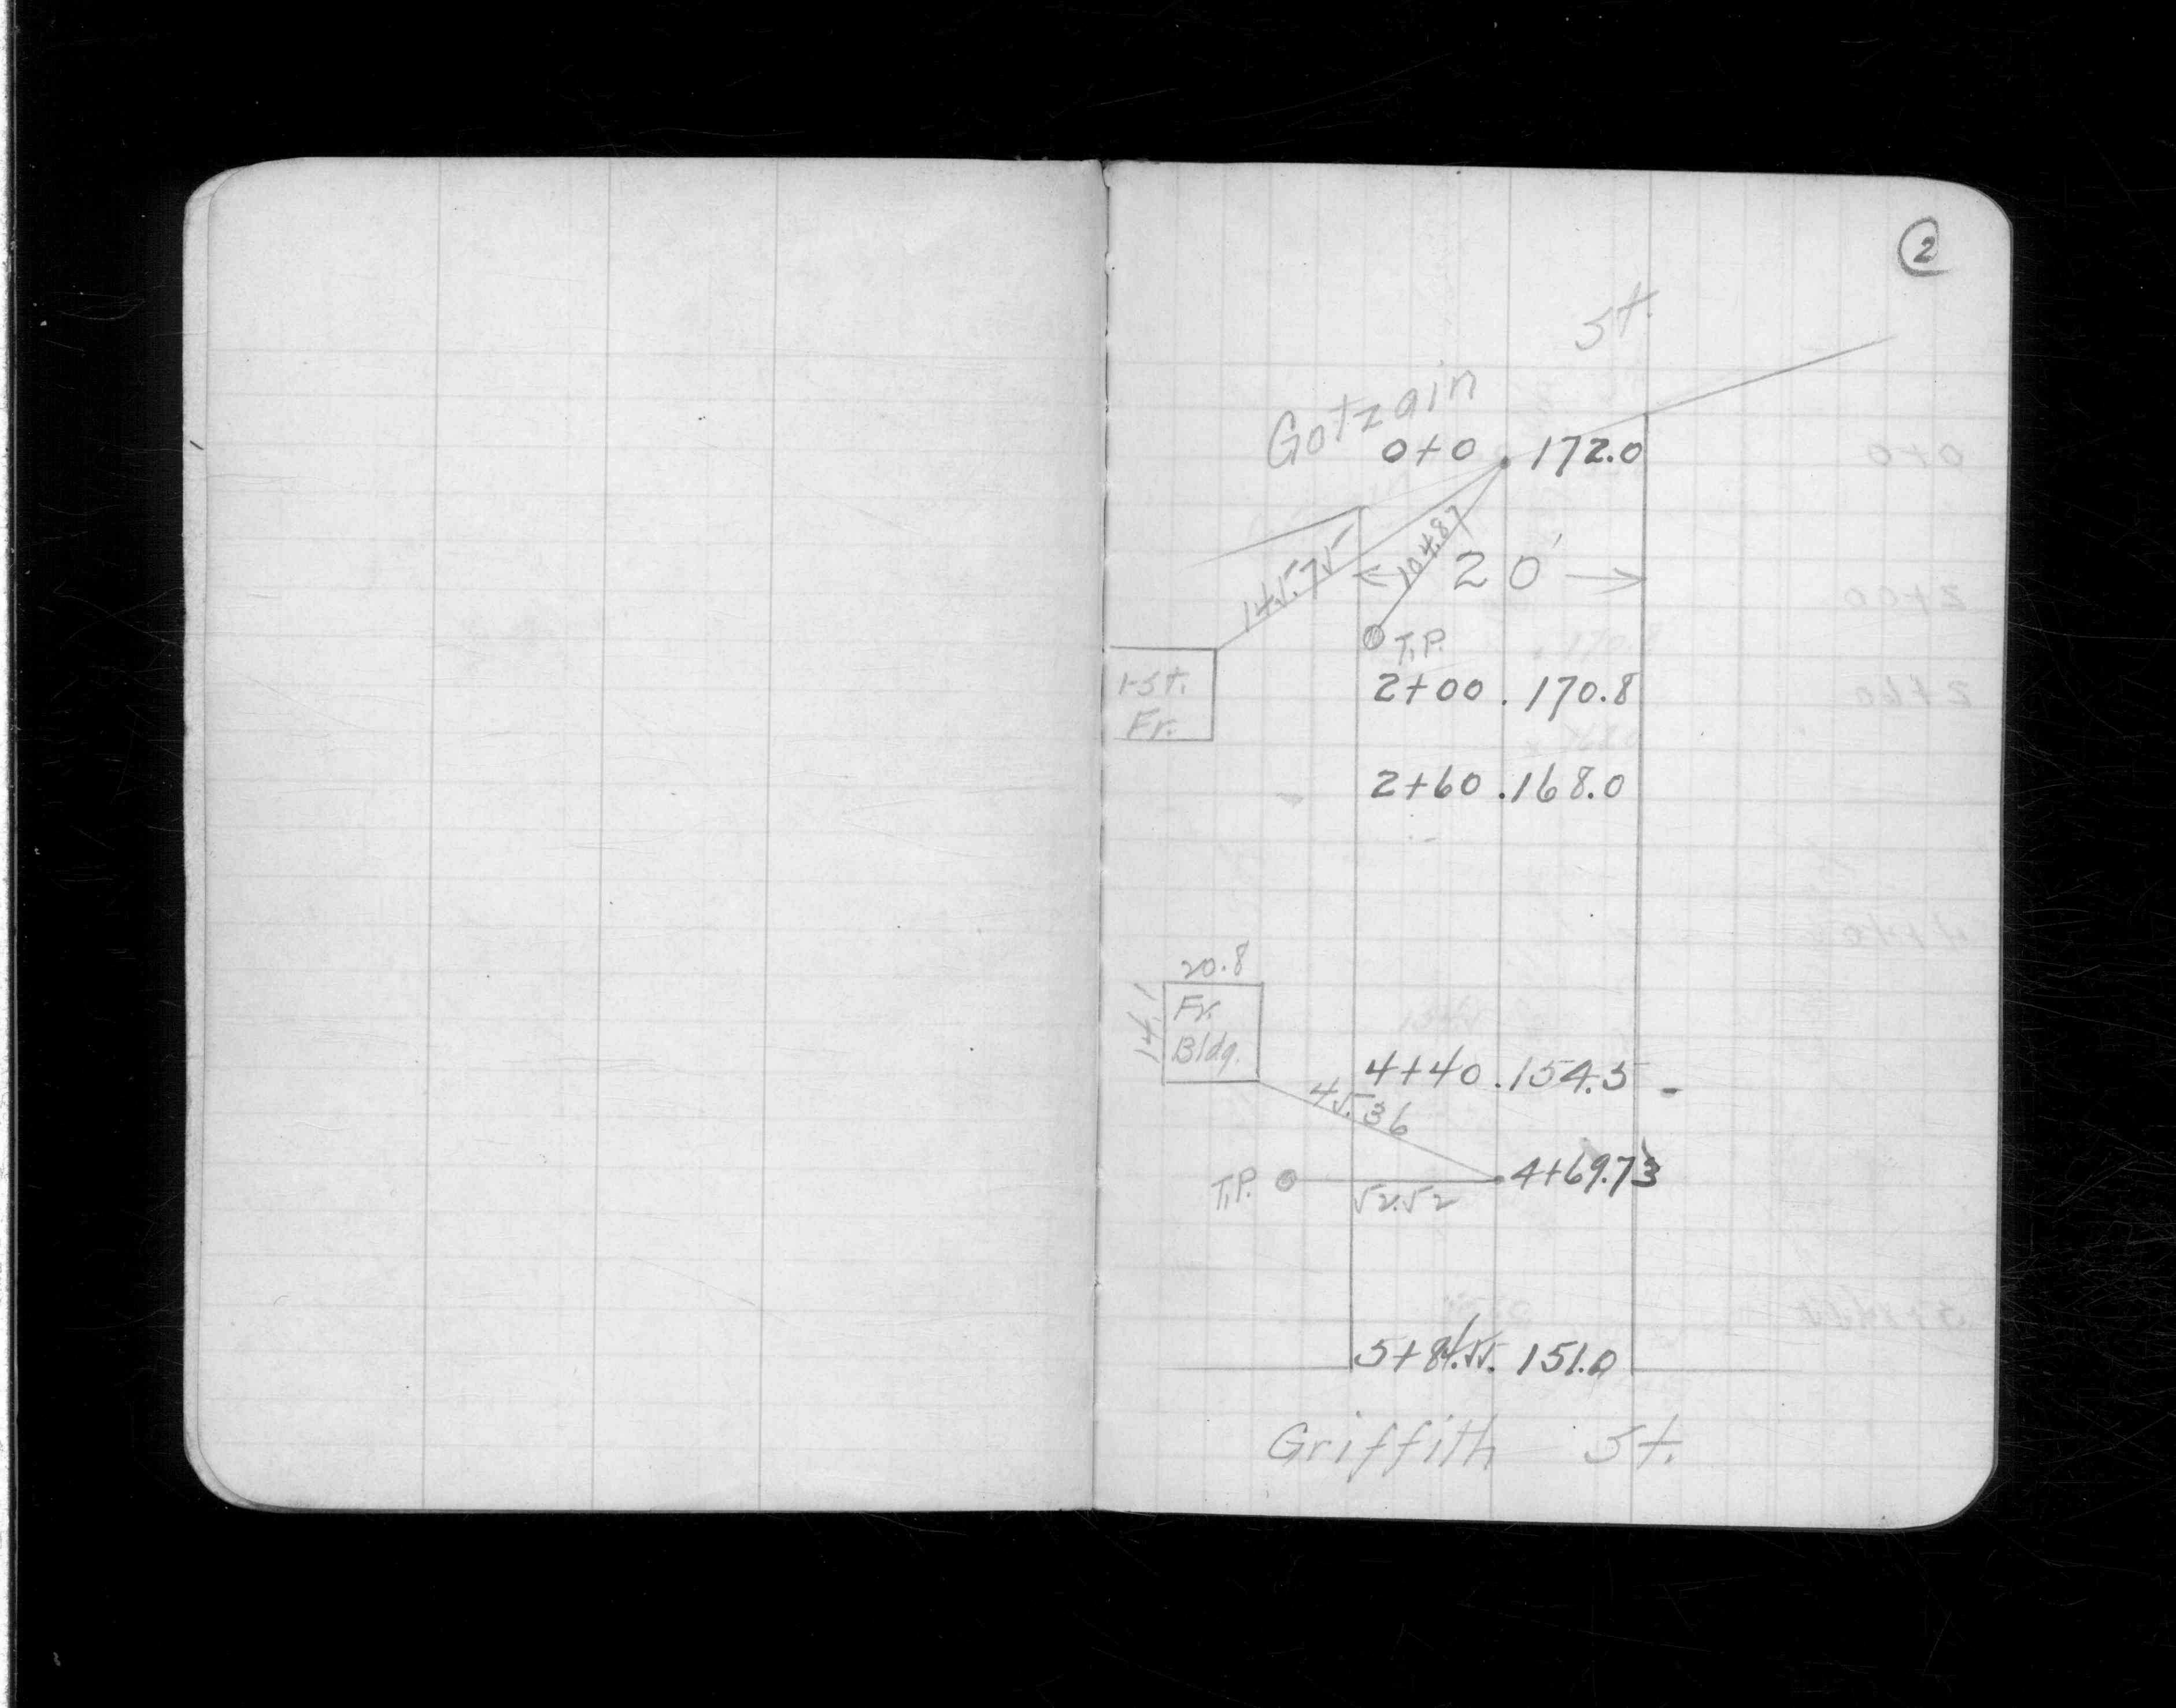 2
St.
Gotzain
0+0 . 172.0
145.75
104.87
20'
T.P.
1-St.
Fr.
2+00 . 170.8
2+60 . 168.0
20.8
14.1
Fr.
Bldg.
4+40 . 154.5 -
45.36
T.P.
52.52
4+69.73
151.0
Griffith St.